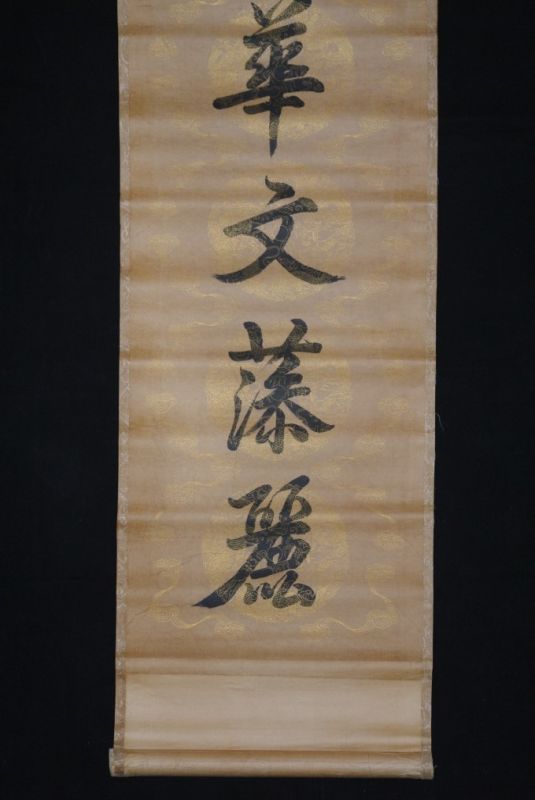 華文藻麗